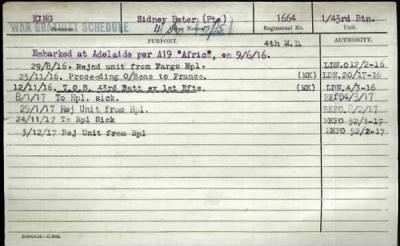 KING Sidney Peter (Pte) 1664 1/43rd Btn.
WAR GRATUITY SCHEDULE Regimental No.
PURPORT. 4th M.D. AUTHORITY.
Embarked at Adelaide per A19 "Afric", on 9/6/16.
29/8/16. Rejnd unit from Fargo Hpl. LDN.012/2-16
25/11/16. Proceeding O/Seas to France. (MK) LDN.20/17-16
12/11/16. T.O.S. 43rd Batt ex 1st Rfts. (MK) LDN.4/3-16
8/1/17 To Hpl. sick.
29/1/17 Rej Unit from Hpl.
24/11/17 To Hpl Sick REFO 52/1-17
3/12/17 Rej Unit from Hpl REFO 52/2-17